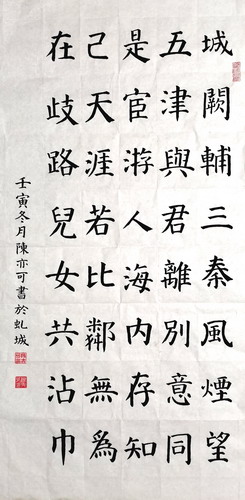 城闕輔三秦風煙望
五津與君離別意同
是宦游人海内存知
己天涯若比鄰無為
在歧路兒女共沾巾
壬寅冬月陳亦可書於虬城